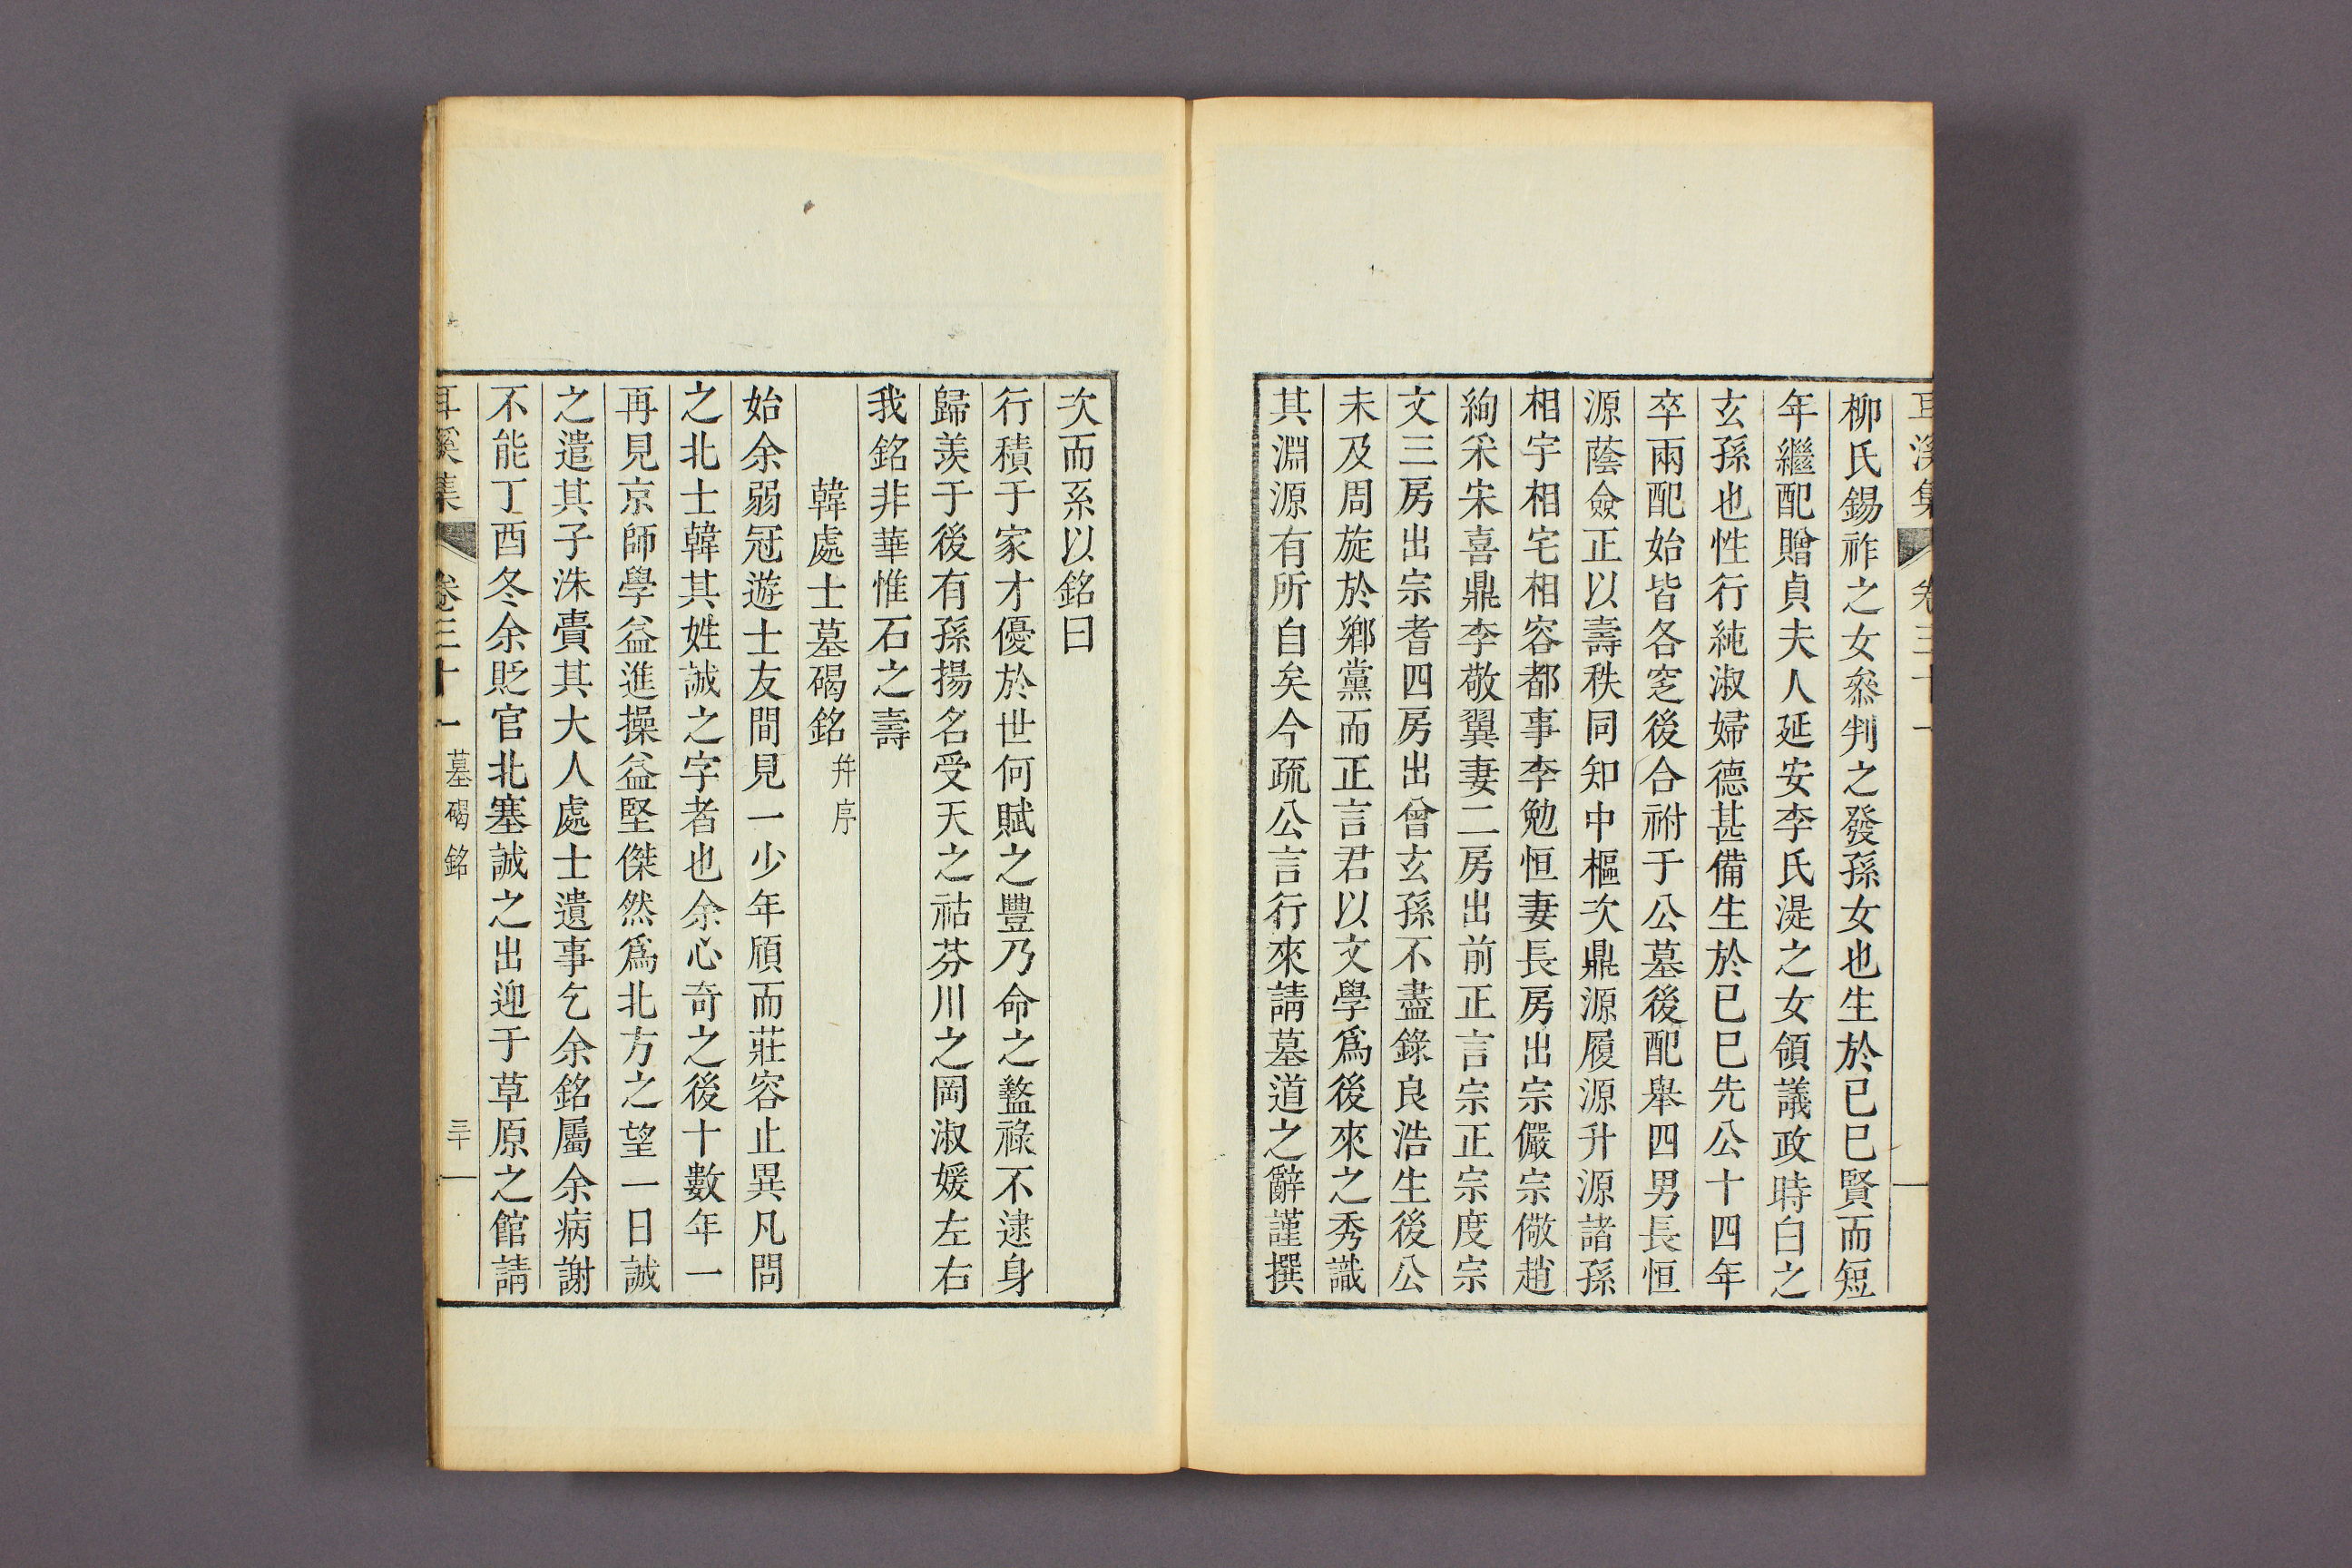 耳溪集 卷三十一
柳氏錫祚之女叅判之發孫女也生於己巳賢而短
年繼配贈貞夫人延安李氏湜之女領議政時白之
玄孫也性行純淑婦德甚備生於己巳先公十四年
卒兩配始皆各窆後合祔于公墓後配舉四男長恒
源蔭僉正以壽秩同知中樞次鼎源履源升源諸孫
相宇相宅相容都事李勉恒妻長房出宗儼宗儆趙
絢采宋喜鼎李敬翼妻二房出前正言宗正宗度宗
文三房出宗耆四房出曾玄孫不盡錄良浩生後公
未及周旋於鄉黨而正言君以文學爲後來之秀識
其淵源有所自矣今疏公言行來請墓道之辭謹撰
次而系以銘曰
行積于家才優於世何賦之豐乃命之盭祿不逮身
歸羨于後有孫揚名受天之祜芬川之岡淑媛左右
我銘非華惟石之壽
韓處士墓碣銘 幷序
始余弱冠遊士友間見一少年頎而莊容止異凡問
之北士韓其姓誠之字者也余心奇之後十數年一
再見京師學益進操益堅傑然爲北方之望一日誠
之遣其子洙賷其大人處士遺事乞余銘屬余病謝
不能丁酉冬余貶官北塞誠之出迎于草原之館請
耳溪集 卷三十一 墓碣銘 三十